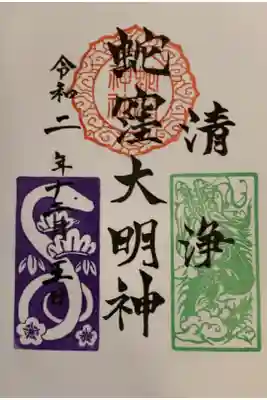 清浄
蛇窪大明神
令和二年十二月